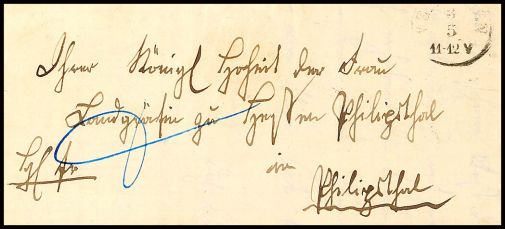 3
5
11-12 V
Ihrer Königl Hoheit der Frau
Landgräfin zu Hessen Philipsthal
in
Philipsthal